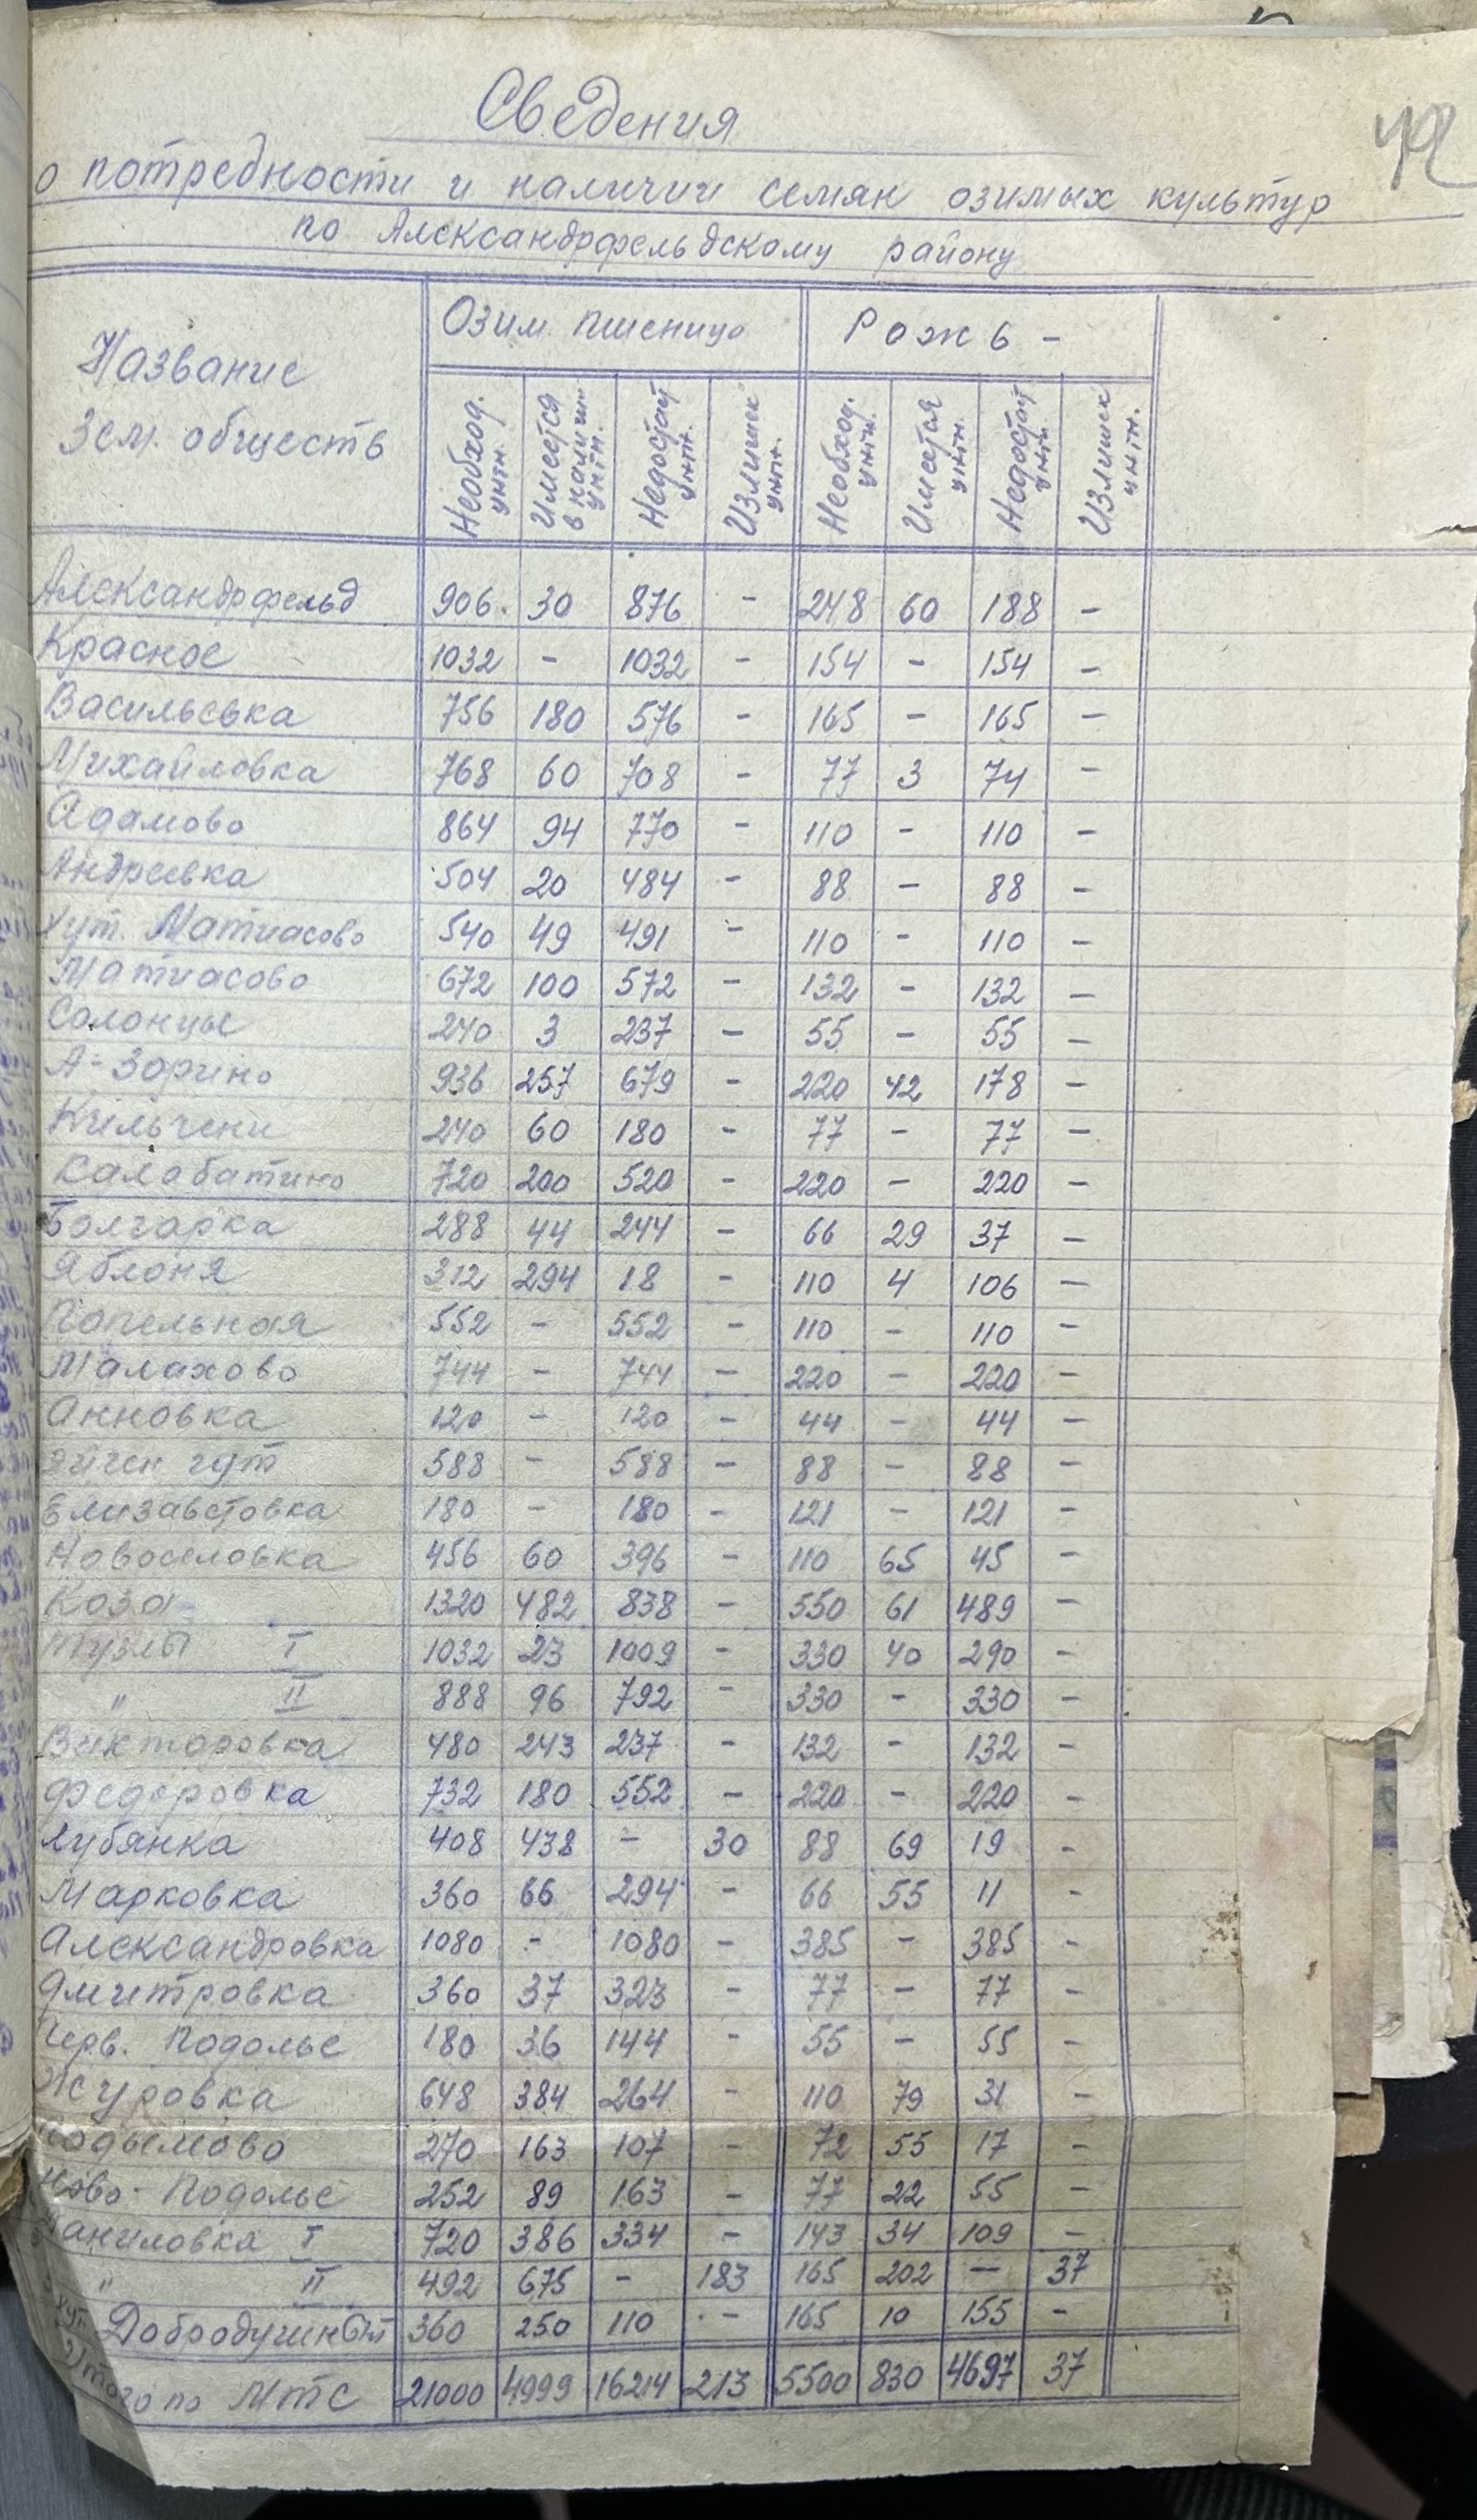 42
Сведения
о потребности и наличии семян озимых культур
по Александрфельдскому району
Название Зем. обществ | Озим. пшеница | Рожь -
Необход. цнтн. | Имеется в налич. цнтн. | Недостает цнтн. | Излишек цнтн. | Необход. цнтн. | Имеется цнтн. | Недостает цнтн. | Излишек цнтн.
Александрфельд 906. 30 876 - 248 60 188 -
Красное 1032 - 1032 - 154 - 154 -
Васильевка 756 180 576 - 165 - 165 -
Михайловка 768 60 708 - 77 3 74 -
Адамово 864 94 770 - 110 - 110 -
Андреевка 504 20 484 - 88 - 88 -
Хут. Матиасово 540 49 491 - 110 - 110 -
Матиасово 672 100 572 - 132 - 132 -
Солонцы 240 3 237 - 55 - 55 -
А-Зорино 936 257 679 - 220 42 178 -
Кильчени 240 60 180 - 77 - 77 -
Калабатино 720 200 520 - 220 - 220 -
Болгарка 288 44 244 - 66 29 37 -
Яблоня 312 294 18 - 110 4 106 -
Попельная 552 - 552 - 110 - 110 -
Малахово 744 - 744 - 220 - 220 -
Анновка 120 - 120 - 44 - 44 -
Эйген гут 588 - 588 - 88 - 88 -
Елизаветовка 180 - 180 - 121 - 121 -
Новоселовка 456 60 396 - 110 65 45 -
Коза 1320 482 838 - 550 61 489 -
Тузлы I 1032 23 1009 - 330 40 290 -
" II 888 96 792 - 330 - 330 -
Викторовка 480 243 237 - 132 - 132 -
Федоровка 732 180 552 - 220 - 220 -
Лубянка 408 438 - 30 88 69 19 -
Марковка 360 66 294 - 66 55 11 -
Александровка 1080 - 1080 - 385 - 385 -
Дмитровка 360 37 323 - 77 - 77 -
Перв. Подолье 180 36 144 - 55 - 55 -
Журовка 648 384 264 - 110 79 31 -
Подымово 270 163 107 - 72 55 17 -
Ново-Подолье 252 89 163 - 77 22 55 -
Даниловка I 720 386 334 - 143 34 109 -
" II 492 675 - 183 165 202 - 37
хут. 360 250 110 - 165 10 155 -
Итого по МТС 21000 4999 16214 213 5500 830 4697 37